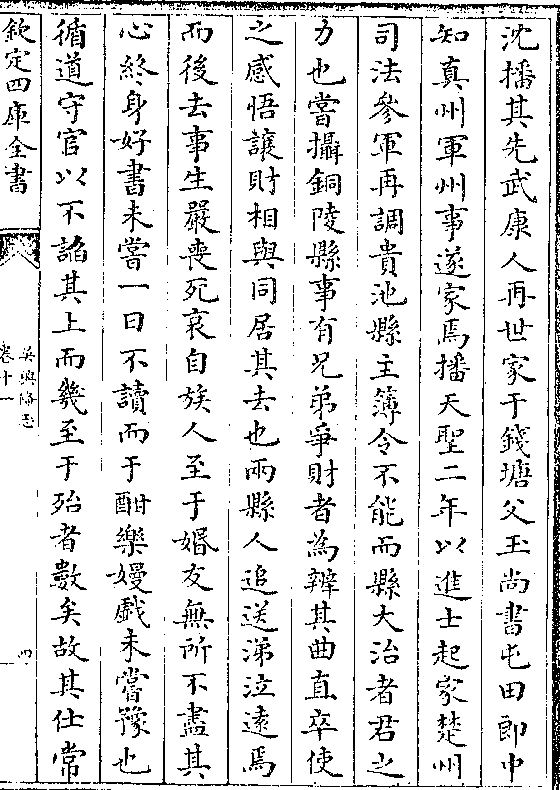 沈播其先武康人再世家于錢塘父玉尚書屯田郎中
知真州軍州事遂家焉播天聖二年以進士起家楚州
司法參軍再調貴池縣主簿令不能而縣大治者君之
力也嘗攝銅陵縣事有兄弟爭財者為辯其曲直卒使
之感悟讓財相與同居其去也兩縣人追送涕泣遠焉
而後去事生嚴喪死哀自族人至于婚友無所不盡其
心終身好書未嘗一日不讀而于酣樂嫚戲未嘗豫也
循道守官以不諂其上而幾至于殆者數矣故其仕常
欽定四庫全書
吳興備志
卷十一
四